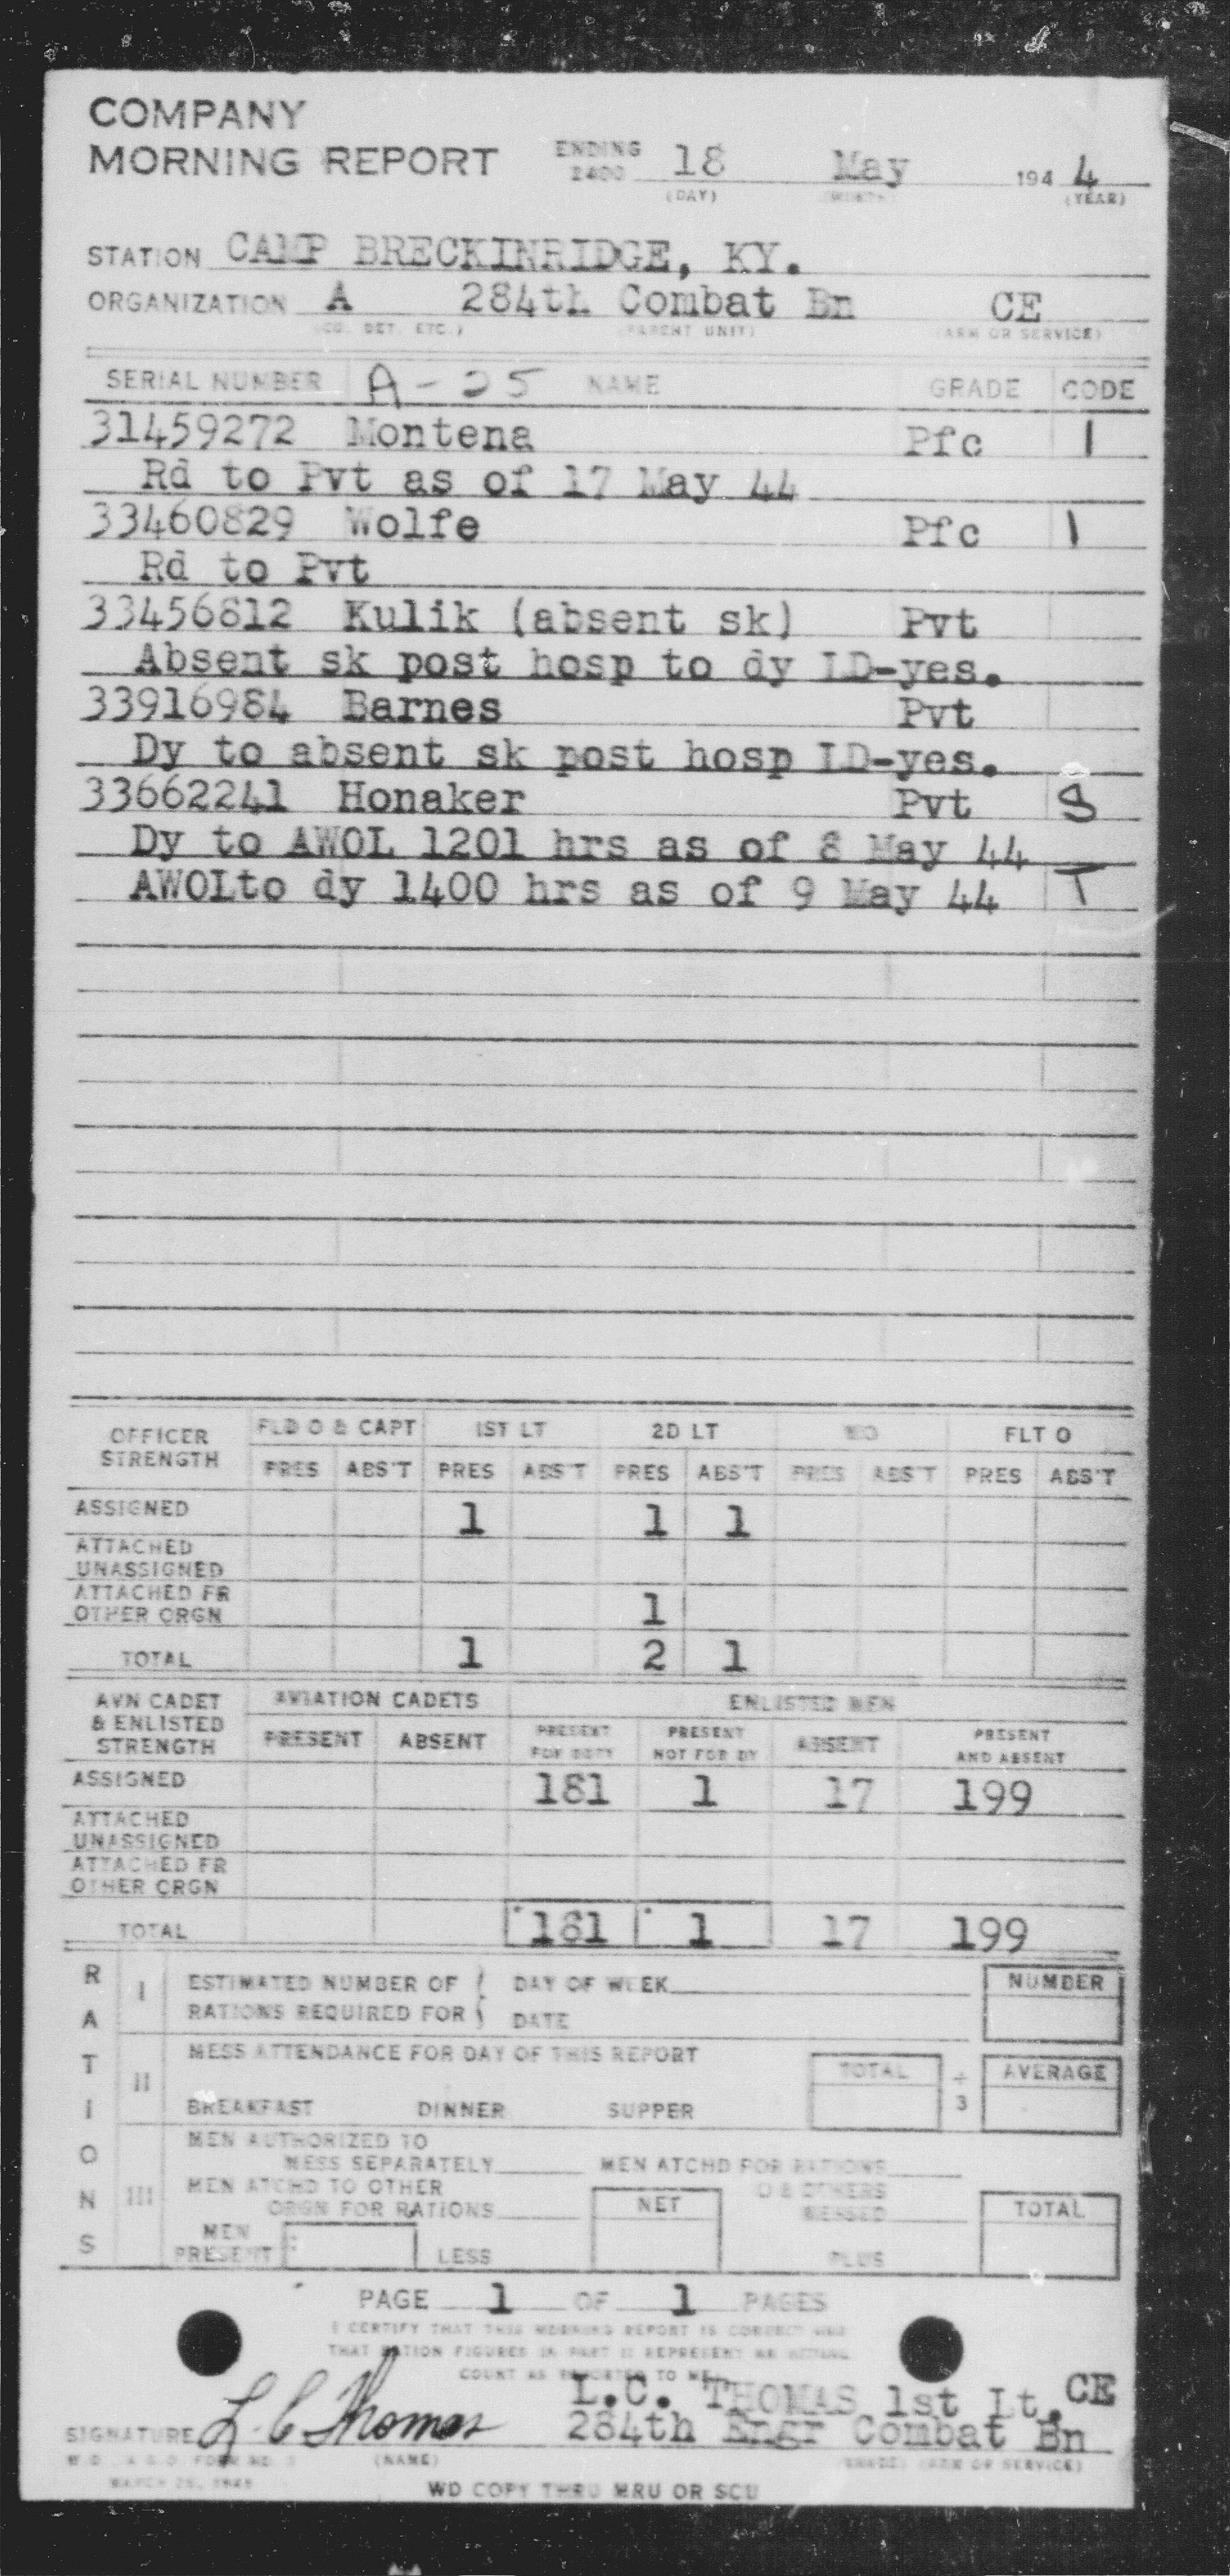 COMPANY
MORNING REPORT ENDING 2400 18 May 194 4
(DAY) (MONTH) (YEAR)
STATION CAMP BRECKINRIDGE, KY.
ORGANIZATION A 284th Combat Bn CE
(CO. DET. ETC.) (PARENT UNIT) (ARM OR SERVICE)
SERIAL NUMBER A-25 NAME GRADE CODE
31459272 Montena Pfc 1
Rd to Pvt as of 17 May 44
33460829 Wolfe Pfc 1
Rd to Pvt
33456812 Kulik (absent sk) Pvt
Absent sk post hosp to dy LD-yes.
33916984 Barnes Pvt
Dy to absent sk post hosp LD-yes.
33662241 Honaker Pvt S
Dy to AWOL 1201 hrs as of 8 May 44
AWOLto dy 1400 hrs as of 9 May 44 T
OFFICER STRENGTH FLD O & CAPT 1ST LT 2D LT WO FLT O
PRES ABS'T PRES ABS'T PRES ABS'T PRES ABS'T PRES ABS'T
ASSIGNED 1 1 1
ATTACHED
UNASSIGNED
ATTACHED FR
OTHER ORGN 1
TOTAL 1 2 1
AVN CADET & ENLISTED STRENGTH AVIATION CADETS ENLISTED MEN
PRESENT ABSENT PRESENT FOR DUTY PRESENT NOT FOR DY ABSENT PRESENT AND ABSENT
ASSIGNED 181 1 17 199
ATTACHED
UNASSIGNED
ATTACHED FR
OTHER ORGN
TOTAL 181 1 17 199
RATIONS
I ESTIMATED NUMBER OF DAY OF WEEK NUMBER
RATIONS REQUIRED FOR DATE
II MESS ATTENDANCE FOR DAY OF THIS REPORT TOTAL ÷ 3 AVERAGE
BREAKFAST DINNER SUPPER
III MEN AUTHORIZED TO
MESS SEPARATELY MEN ATCHD FOR RATIONS
MEN ATCHD TO OTHER O & OTHERS
ORGN FOR RATIONS NET MESSED TOTAL
MEN
PRESENT LESS PLUS
PAGE 1 OF 1 PAGES
I CERTIFY THAT THIS MORNING REPORT IS CORRECT AND
THAT RATION FIGURES IN PART II REPRESENT AN ACTUAL
COUNT AS REPORTED TO ME
L.C. THOMAS 1st Lt. CE
SIGNATURE L. C Thomas 284th Engr Combat Bn
(NAME) (GRADE) (ARM OR SERVICE)
WD COPY THRU MRU OR SCU